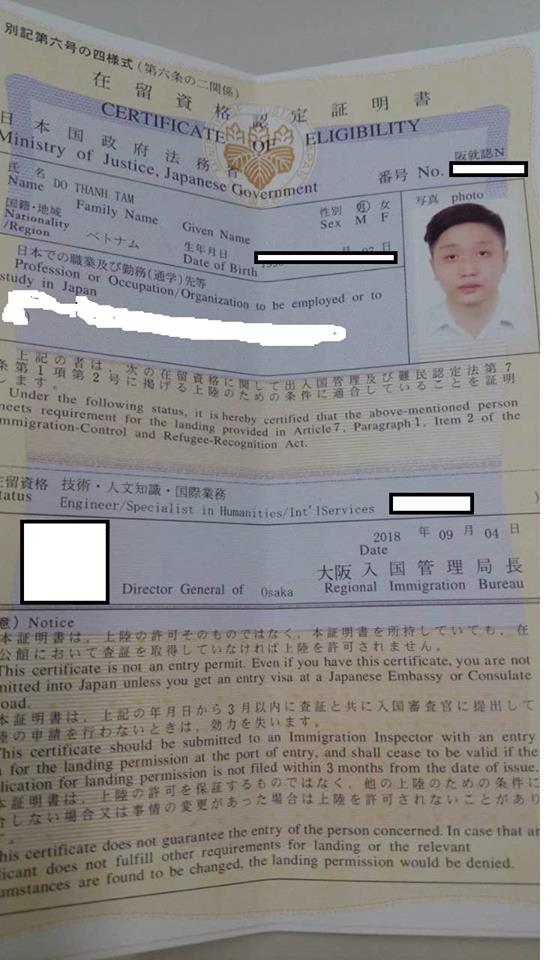 別記第六号の四様式(第六条の二関係)
在留資格認定証明書
CERTIFICATE OF ELIGIBILITY
日本国政府法務省
Ministry of Justice, Japanese Government
阪就認N
番号 No.
氏名 DO THANH TAM
Name Family Name Given Name
性別 男 女
Sex M F
写真 photo
国籍・地域 ベトナム
Nationality
/Region
生年月日 月 07 日
Date of Birth
日本での職業及び勤務(通学)先等
Profession or Occupation/Organization to be employed or to
study in Japan
上記の者は、次の在留資格に関して出入国管理及び難民認定法第7
条第1項第2号に掲げる上陸のための条件に適合していることを証明
します。
Under the following status, it is hereby certified that the above-mentioned person
meets requirement for the landing provided in Article 7, Paragraph 1, Item 2 of the
Immigration-Control and Refugee-Recognition Act.
在留資格 技術・人文知識・国際業務
Status Engineer/Specialist in Humanities/Int'lServices )
2018 年 09 月 04 日
Date
大阪入国管理局長
Director General of Osaka Regional Immigration Bureau
意) Notice
本証明書は、上陸の許可そのものではなく、本証明書を所持していても、在
公館において査証を取得していなければ上陸を許可されません。
This certificate is not an entry permit. Even if you have this certificate, you are not
mitted into Japan unless you get an entry visa at a Japanese Embassy or Consulate
road.
本証明書は、上記の年月日から3月以内に査証と共に入国審査官に提出して
陸の申請を行わないときは、効力を失います。
This certificate should be submitted to an Immigration Inspector with an entry
for the landing permission at the port of entry, and shall cease to be valid if the
lication for landing permission is not filed within 3 months from the date of issue.
本証明書は、上陸の許可を保証するものではなく、他の上陸のための条件に
合しない場合又は事情の変更があった場合は上陸を許可されないことがあり
。
This certificate does not guarantee the entry of the person concerned. In case that an
licant does not fulfill other requirements for landing or the relevant
umstances are found to be changed, the landing permission would be denied.